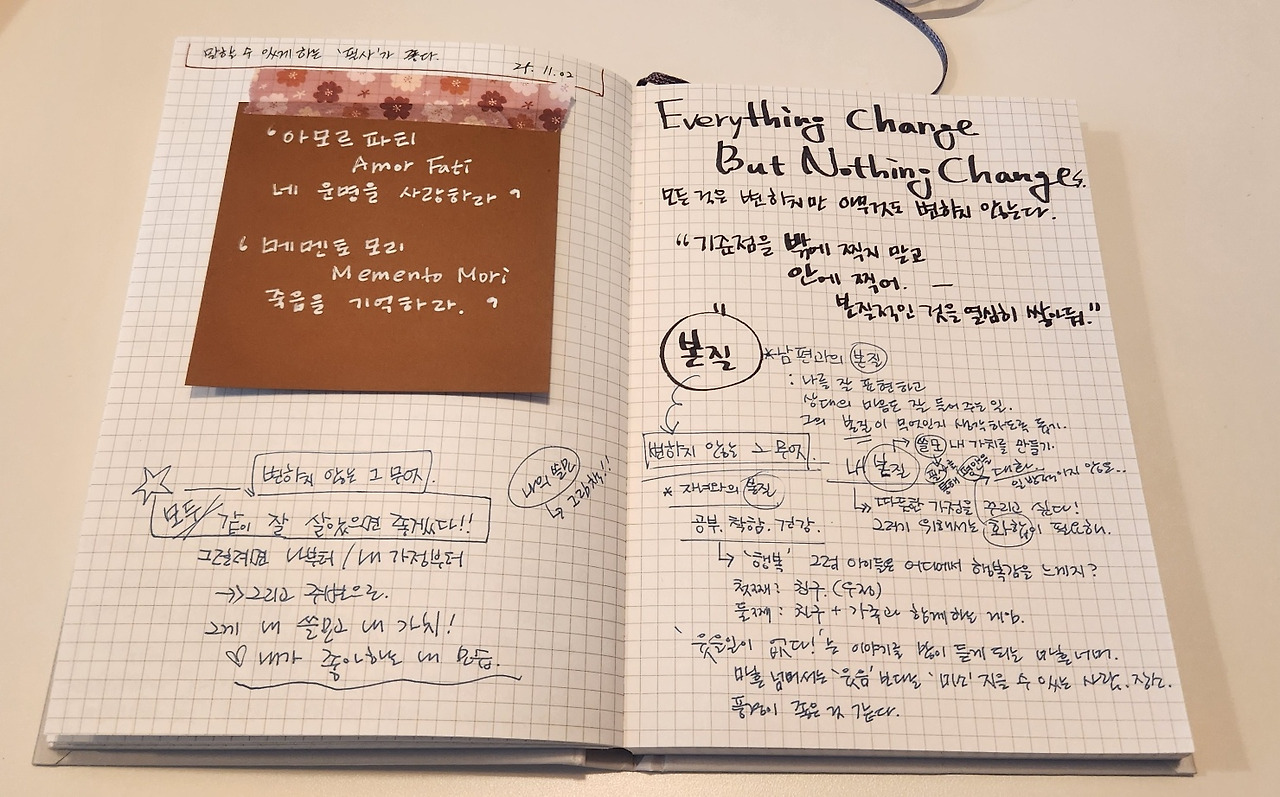 말할 수 있게 하는 '필사'가 좋다.
25. 11. 02
'아모르 파티
Amor Fati
네 운명을 사랑하라'
'메멘토 모리
Memento Mori
죽음을 기억하라.'
변하지 않는 그 무엇.
모두/같이 잘 살았으면 좋겠다!!
그럴려면 나부터/내 가정부터
→ 그리고 주변으로.
그게 내 쓸모고 내 가치!
♡ 내가 좋아하는 내 모습.
나의 쓸모
↳ 그림책!!
Everything Change
But Nothing Changes.
모든 것은 변하지만 아무것도 변하지 않는다.
"기준점을 밖에 찍지 말고
안에 찍어. —
본질적인 것을 열심히 쌓아둬."
본질
변하지 않는 그 무엇.
*남편과의 본질
: 나를 잘 표현하고
상대의 마음도 잘 들어주는 일.
그의 본질이 무엇인지 생각하도록 돕기.
내 본질
→ 쓸모 내 가치를 만들기.
필사를 통해
대화..
↳ 따뜻한 가정을 꾸리고 싶다!
그러기 위해서는 화합이 필요해.
* 자녀와의 본질
공부. 착함. 건강.
↳ '행복' 그럼 아이들은 어디에서 행복감을 느끼지?
첫째 : 친구. (우정)
둘째 : 친구 + 가족과 함께하는 게임.
'웃을일이 없다!'는 이야기를 많이 듣게 되는 마흔 너머.
마흔 넘어서는 '웃음' 보다는 '미소' 지을 수 있는 사람. 장소.
풍경이 좋은 것 같다.